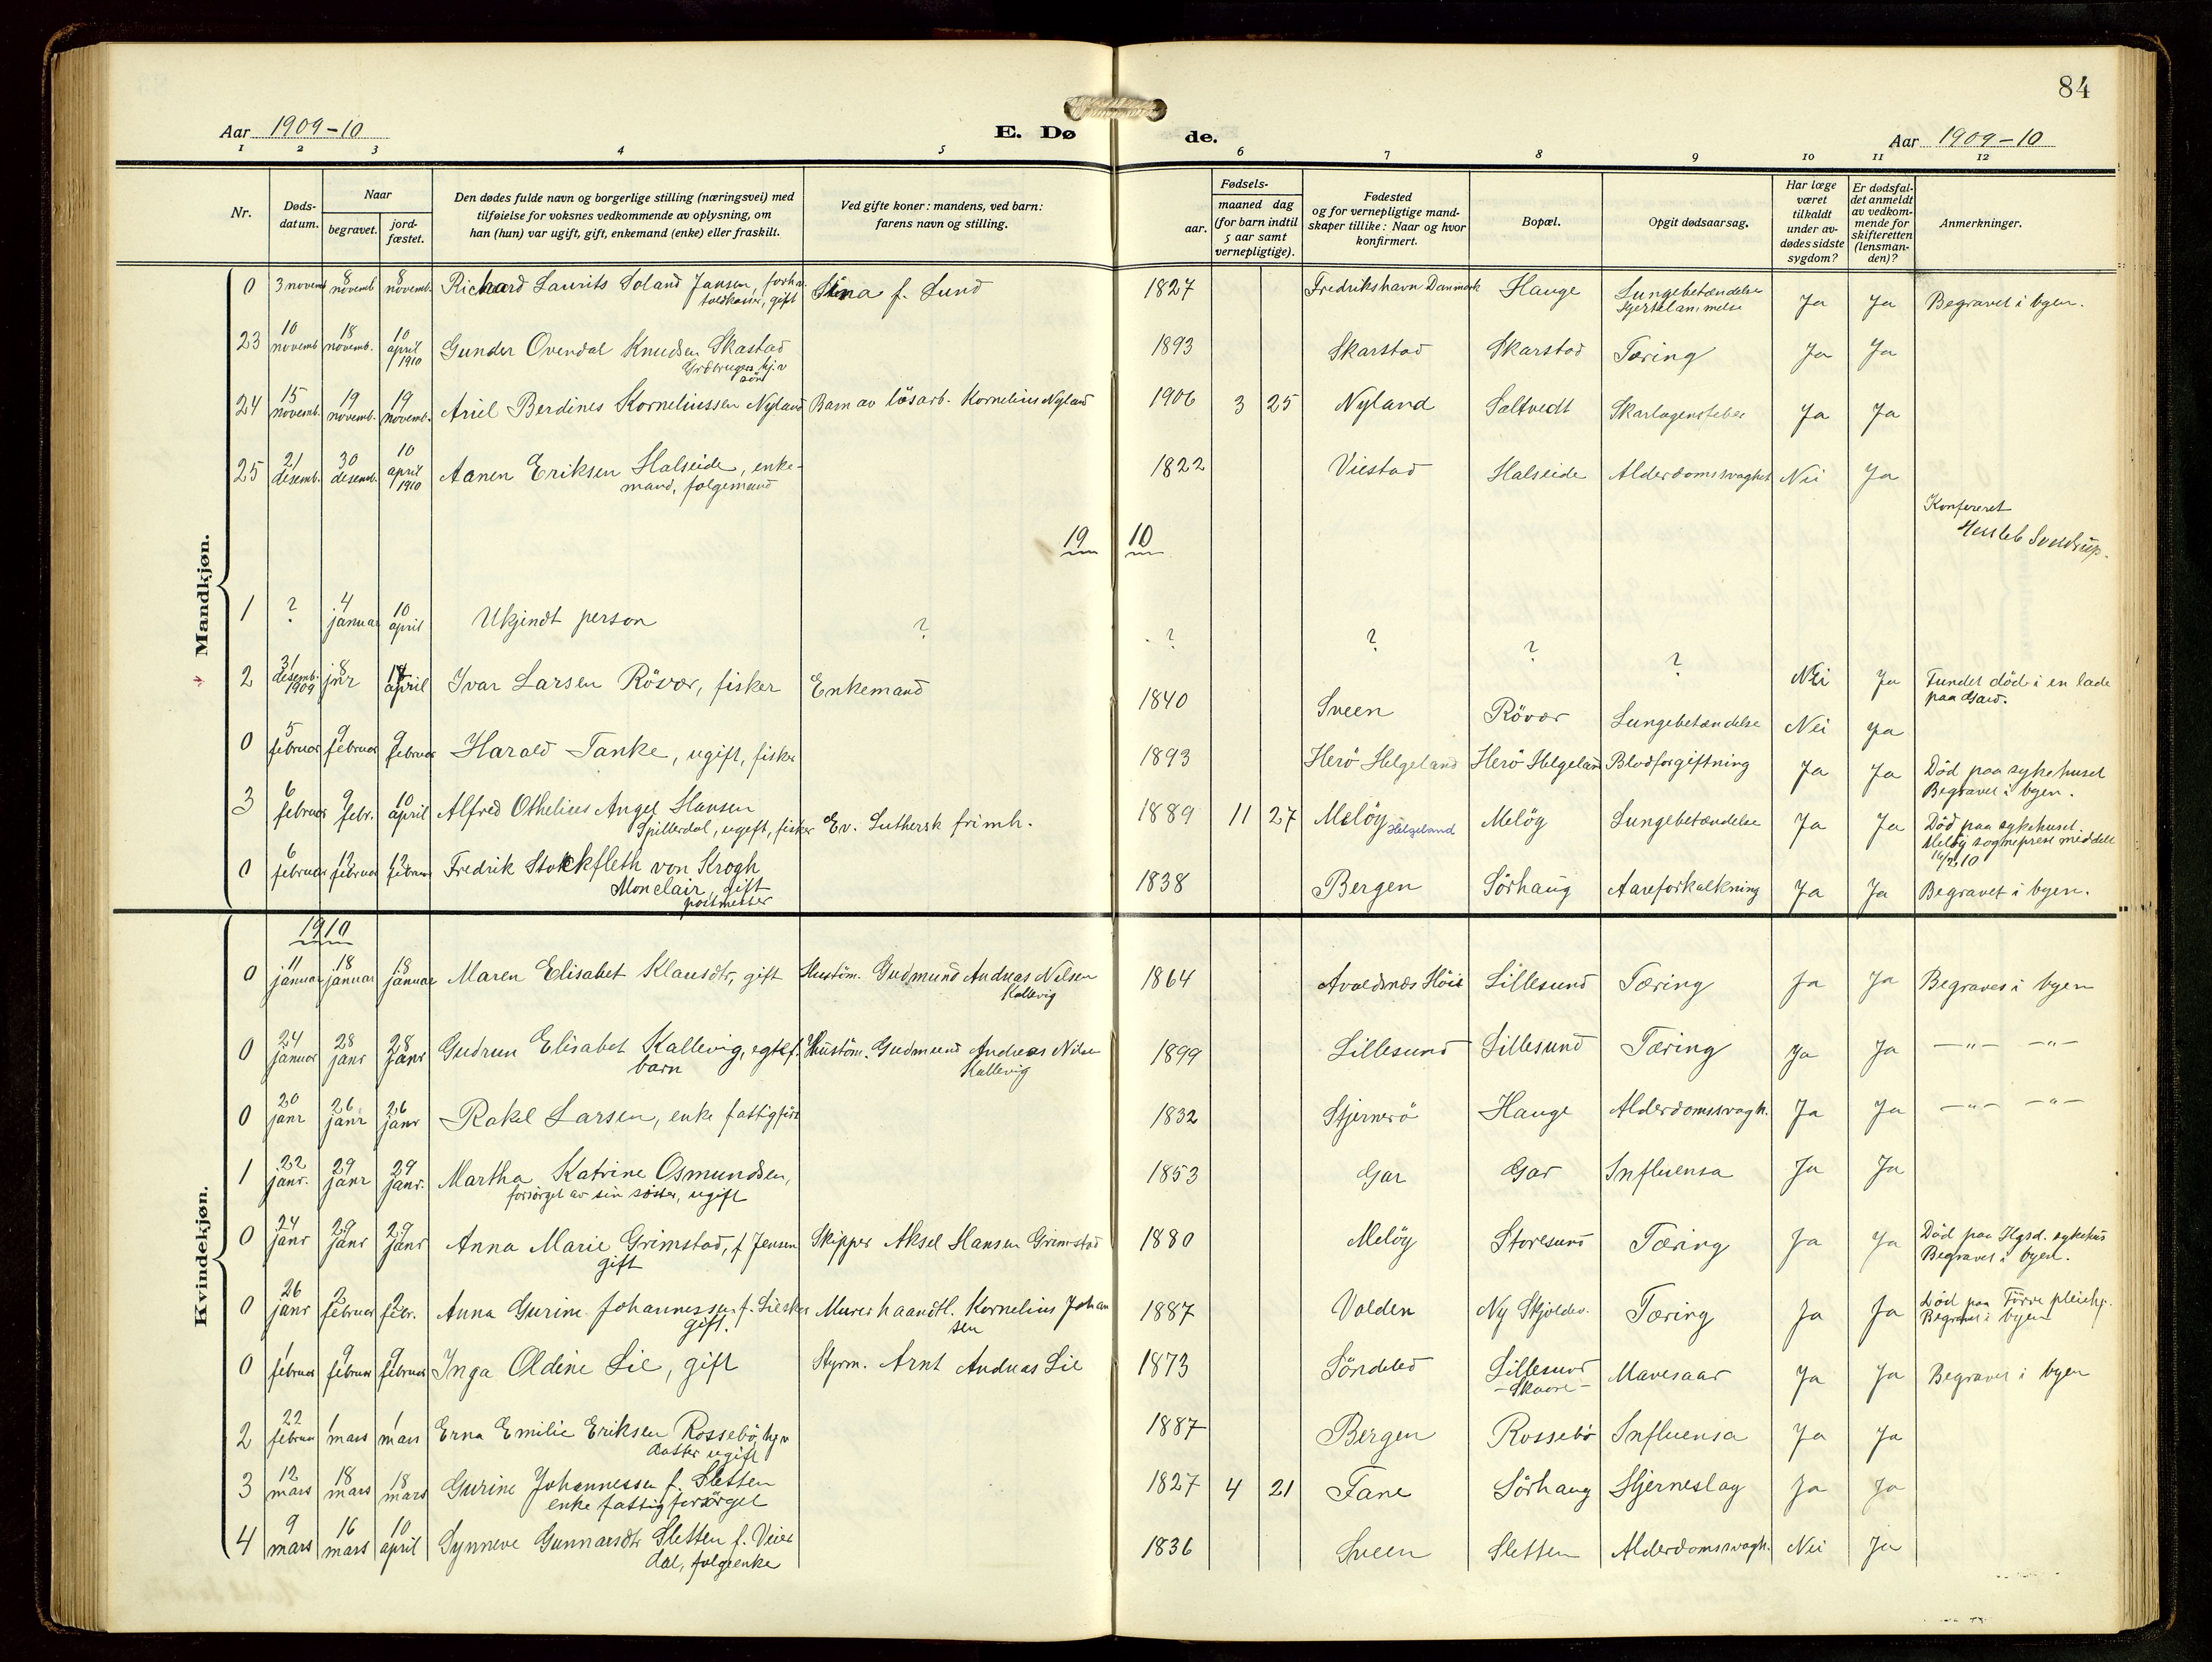 84
Aar 1909-10 E. Døde. Aar 1909-10
1 2 3 4 5 6 7 8 9 10 11 12
Nr. | Døds-datum. | Naar begravet. | jord-fæstet. | Den dødes fulde navn og borgerlige stilling (næringsvei) med tilføielse for voksnes vedkommende av oplysning, om han (hun) var ugift, gift, enkemand (enke) eller fraskilt. | Ved gifte koner: mandens, ved barn: farens navn og stilling. | Fødsels- aar. | maaned dag (for barn indtil 5 aar samt vernepligtige). | Fødested og for vernepligtige mandskaper tillike: Naar og hvor konfirmert. | Bopæl. | Opgit dødsaarsag. | Har læge været tilkaldt under avdødes sidste sygdom? | Er dødsfaldet anmeldt av vedkommende for skifteretten (lensmanden)? | Anmerkninger.
Mandkjøn.
0 | 3 novemb | 8 novemb | 8 novemb. | Richard Laurits Soland Jansen, forhv. toldkasser, gift | Stina f. Lund | 1827 | Fredrikshavn Danmark | Hauge | Lungebetændelse | Ja | Ja | Begravet i byen.
23 | 10 novemb | 18 novemb. | 10 april 1910 | Gunder Ovendal Knudsen Skastad Grdbrugers hj.v søn | 1893 | Skarstad | Skarstad | Tæring | Ja | Ja
24 | 15 novemb. | 19 novemb. | 19 novemb. | Ariel Berdines Korneliussen Nyland | Barn av løsarb. Kornelius Nyland | 1906 | 3 | 25 | Nyland | Saltvedt | Skarlagensfeber | Ja | Ja
25 | 21 desemb. | 30 desemb. | 10 april 1910 | Aanen Eriksen Halseide, enkemand, folgemand | 1822 | Viestad | Halseide | Alderdomssvaghet | Nei | Ja
Konfereret
1910
1 | ? | 4 januar | 10 april | Ukjendt person | ? | ? | ? | ? | ? | Nei | Ja | Fundet død i en lade paa Gard.
2 | 31 desemb. 1909 | 8 jnr | april | Ivar Larsen Røvær, fisker | Enkemand | 1840 | Sveen | Røvær | Lungebetændelse | Nei | Ja
0 | 5 februar | 9 februar | 9 februar | Harald Tanke, ugift, fisker | 1893 | Herø Helgeland | Herø Helgeland | Blodforgiftning | Ja | Ja | Død paa sykehuset Begravet i byen.
3 | 6 februar | 9 febr. | 10 april | Alfred Othelius Angel Hansen Spillerdal, ugift, fisker | Ev. Luthersk frimh. | 1889 | 11 | 27 | Meløy Helgeland | Meløy | Lungebetændelse | Ja | Ja | Død paa sykehuset. Meløy sogneprest meddelt 16/2 10
0 | 6 februar | 12 februar | 12 februar | Fredrik Stockfleth von Krogh Monclair, gift postmester | 1838 | Bergen | Sørhaug | Aareforkalkning | Ja | Ja | Begravet i byen.
Kvindekjøn.
1910
0 | 11 januar | 18 januar | 18 januar | Maren Elisabet Klausdtr, gift | Hustøm. Gudmund Andreas Nilsen Kallevig | 1864 | Avaldsnes | Lillesund | Tæring | Ja | Ja | Begraves i byen
0 | 24 januar | 28 janr | 28 janr | Gudrun Elisabet Kallevig, egtef. barn | Hustøm. Gudmund Andreas Nilsen Kallevig | 1899 | Lillesund | Lillesund | Tæring | Ja | Ja | —"— —"—
0 | 20 janr | 26 janr | 26 janr | Rakel Larsen, enke fattigfors | 1832 | Stjernerø | Hauge | Alderdomssvagh. | Ja | Ja | —"— —"—
1 | 22 janr. | 29 janr | 29 janr. | Martha Katrine Osmundsen, forsørget av sin søster, ugift | 1853 | Gar | Gar | Influensa | Ja | Ja
0 | 24 janr | 29 janr | 29 janr | Anna Marie Grimstad, f Jensen gift | Skipper Aksel Hansen Grimstad | 1880 | Meløy | Storesund | Tæring | Ja | Ja | Død paa Hgsd. sykehus Begravet i byen.
0 | 26 janr | 2 februar | 2 febr. | Anna Gurine Johannessen f. gift. | Murerhaandtl. Kornelius Johansen | 1887 | Valden | Ny Skjoldev. | Tæring | Ja | Ja | Død paa pleiehj. Begravet i byen
0 | 1 februar | 9 februar | 9 februar | Inga Oldine Lie, gift | Styrm. Arnt Andreas Lie | 1873 | Søndeled | Lillesund - Skaare - | Mavesaar | Ja | Ja | Begravet i byen
2 | 22 februar | 1 mars | 1 mars | Erna Emilie Eriksen Rossebø, hjv datter ugift | 1887 | Bergen | Rossebø | Influensa | Ja | Ja
3 | 12 mars | 18 mars | 18 mars | Gurine Johannessen f. Sletten enke fattigforsørget | 1827 | 4 | 21 | Fane | Sørhaug | Hjerneslag | Ja | Ja
4 | 9 mars | 16 mars | 10 april | Synneve Gunnarsdtr Sletten f. Veiedal, folgeenke | 1836 | Sveen | Sletten | Alderdomssvagh. | Nei | Ja